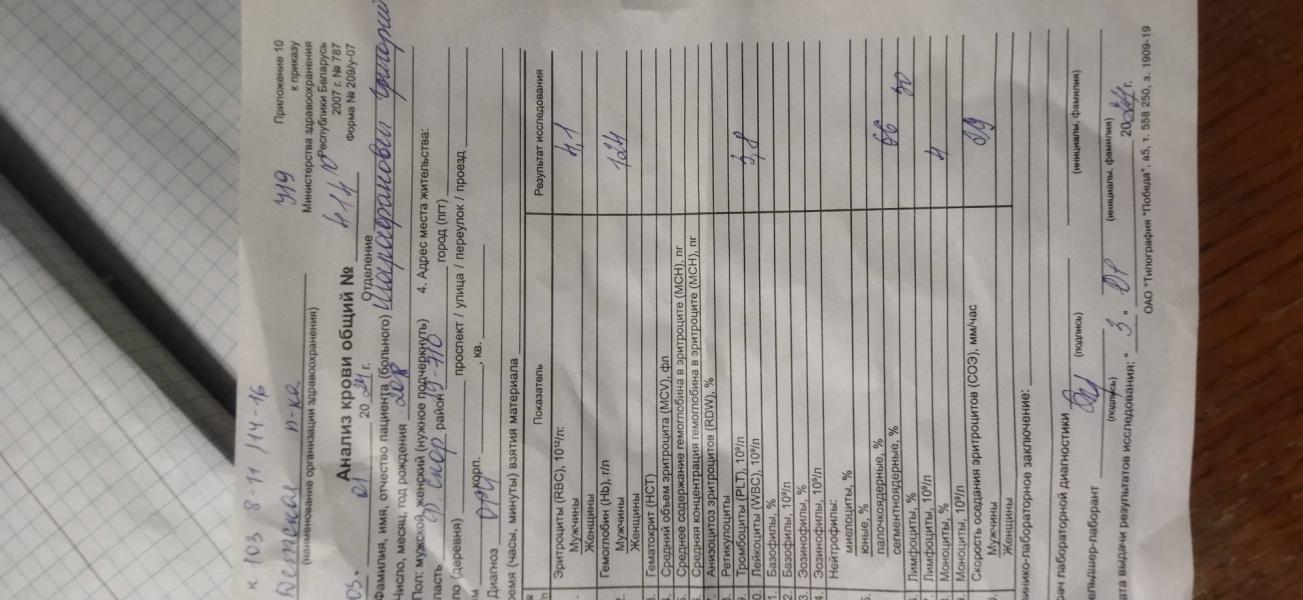 к 103 8-11 /14-16
Детская п-ка
(наименование организации здравоохранения)
Приложение 10
к приказу
Министерства здравоохранения
Республики Беларусь
2007 г. № 787
Форма № 209/у-07
Анализ крови общий №
03. 01 20 г.
Отделение
Фамилия, имя, отчество пациента (больного)
Число, месяц, год рождения
Пол: мужской, женский (нужное подчеркнуть) 4. Адрес места жительства:
ласть район город (пгт)
ло (деревня) проспект / улица / переулок / проезд
м корп. , кв.
Диагноз ОРИ
ремя (часы, минуты) взятия материала
Показатель Результат исследования
Эритроциты (RBC), 10¹²/л:
Мужчины 4,1
Женщины
Гемоглобин (Hb), г/л
Мужчины 124
Женщины
Гематокрит (HCT)
Средний объем эритроцита (MCV), фл
Среднее содержание гемоглобина в эритроците (MCH), пг
Средняя концентрация гемоглобина в эритроците (MCH), пг
Анизоцитоз эритроцитов (RDW), %
Ретикулоциты
Тромбоциты (PLT), 10⁹/л
Лейкоциты (WBC), 10⁹/л 3,8
Базофилы, %
Базофилы, 10⁹/л
Эозинофилы, %
Эозинофилы, 10⁹/л
Нейтрофилы:
миелоциты, %
юные, %
палочкоядерные, %
сегментоядерные, % 66
Лимфоциты, % 30
Лимфоциты, 10⁹/л
Моноциты, % 4
Моноциты, 10⁹/л
Скорость оседания эритроцитов (СОЭ), мм/час
Мужчины
Женщины
линико-лабораторное заключение:
рач лабораторной диагностики
(подпись) (инициалы, фамилия)
ельдшер-лаборант
(подпись) (инициалы, фамилия)
ата выдачи результатов исследования: " 3 " 20 г.
ОАО "Типография "Победа", а5, т. 558 250, з. 1909-19